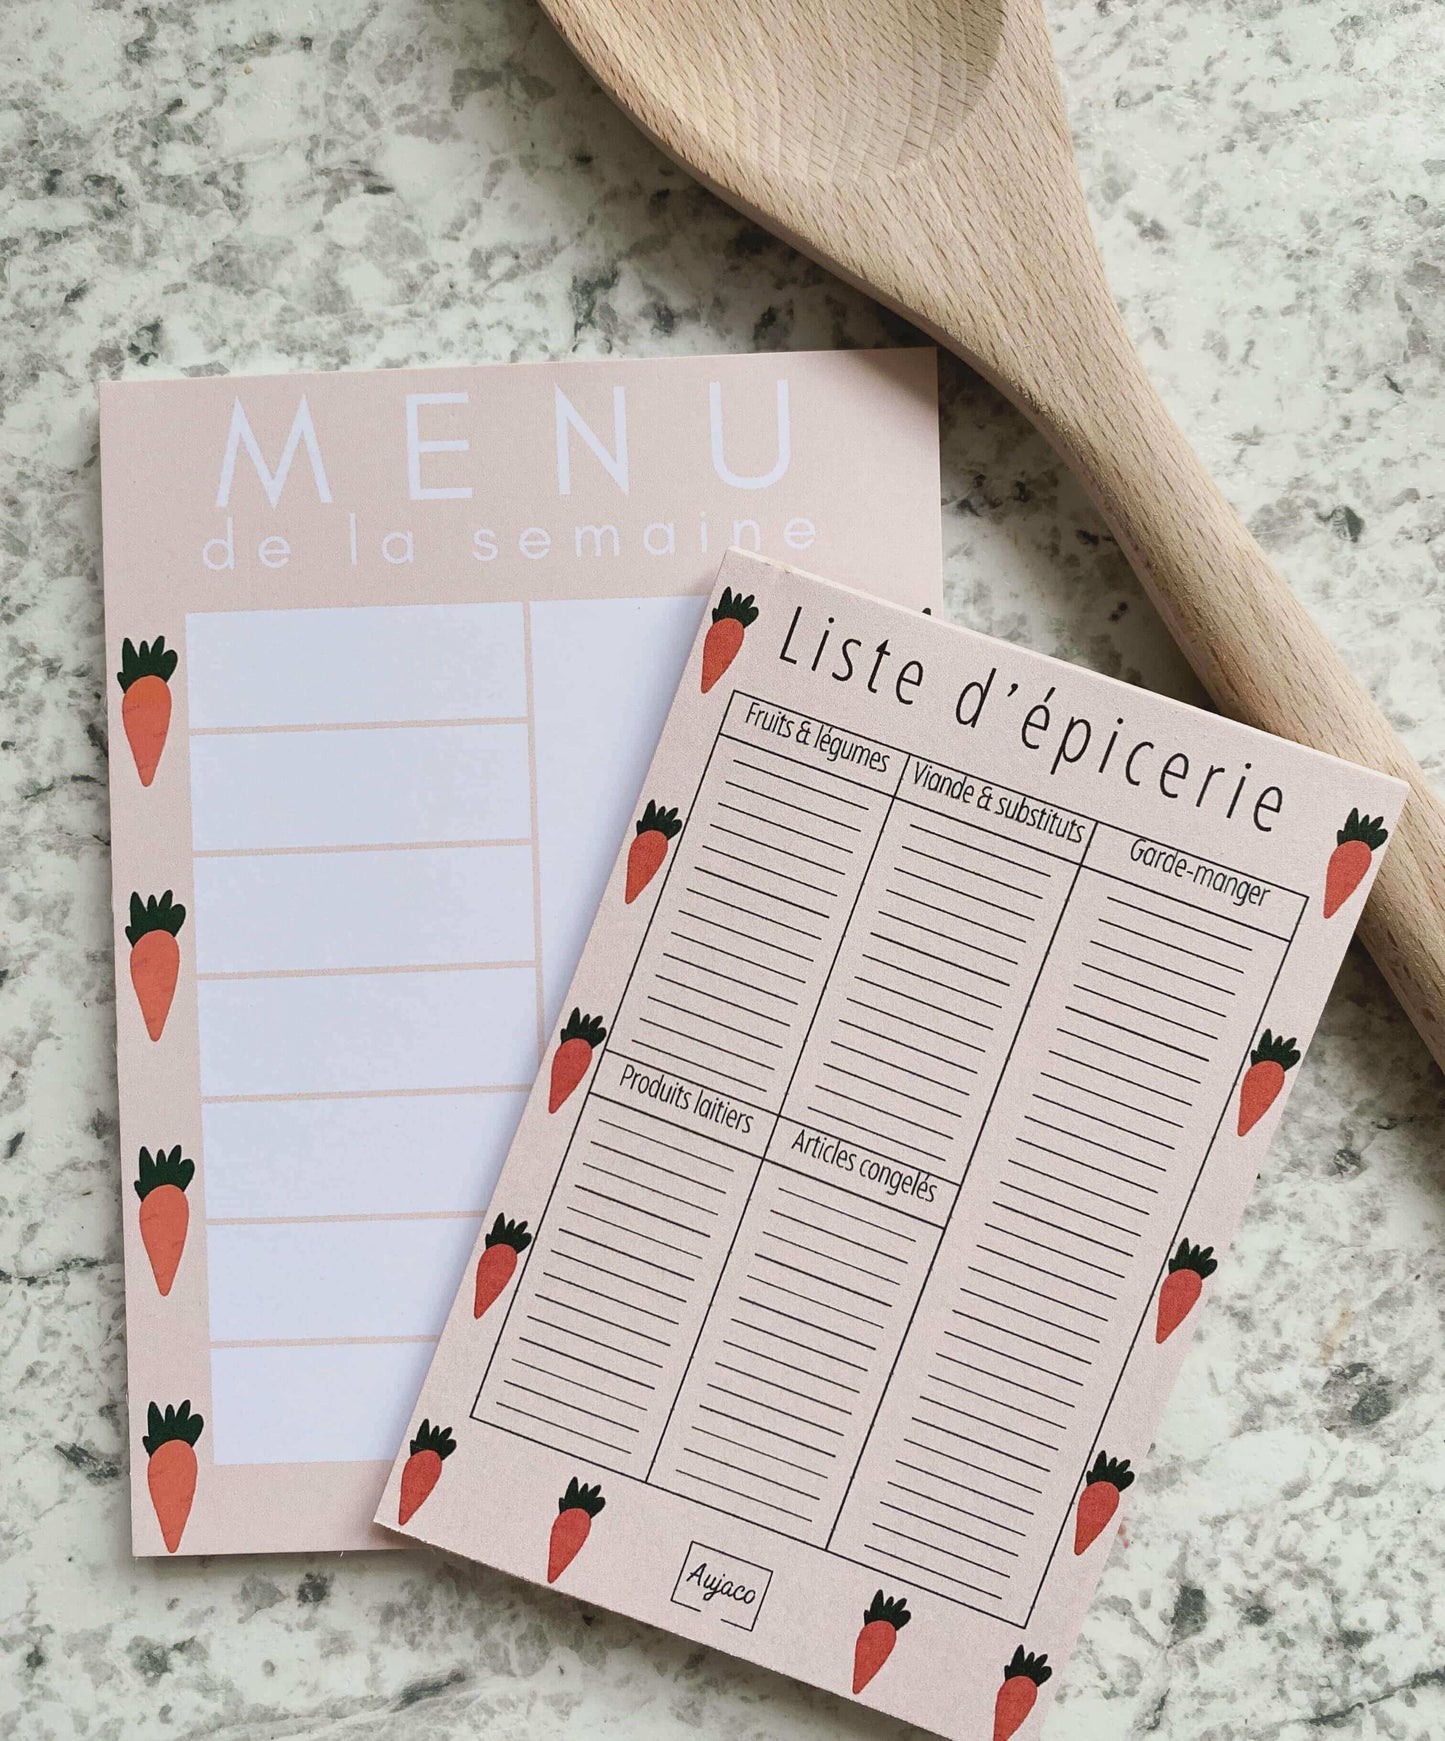 MENU
de la semaine
Liste d'épicerie
Fruits & légumes
Viande & substituts
Garde-manger
Produits laitiers
Articles congelés
Aujaco